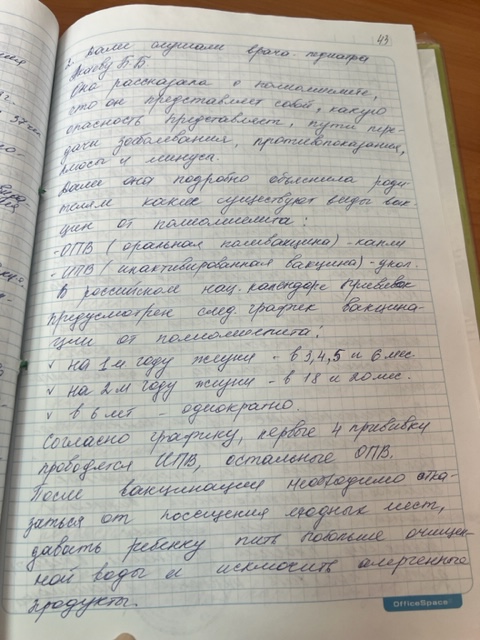 43
2. Далее слушали врача-педиатра
Она рассказала о полиомиелите,
что он представляет собой, какую
опасность представляет, пути пере-
дачи заболевания, противопоказания,
плюсы и минусы.
Далее она подробно объяснила роди-
телям какие существуют виды вак
цин от полиомиелита:
-ОПВ (оральная поливакцина) - капли
-ИПВ (инактивированная вакцина) - укол.
В российском нац. календаре прививок
предусмотрен след. график вакцина-
ции от полиомиелита:
√ на 1м году жизни - в 3, 4, 5 и 6 мес.
√ на 2м году жизни - в 18 и 20 мес.
√ в 6 лет - однократно.
Согласно графику, первые 4 прививки
проводятся ИПВ, остальные ОПВ.
После вакцинации необходимо отка-
заться от посещения людных мест,
давать ребенку пить побольше очищен-
ной воды и исключить алергенные
продукты.
OfficeSpace